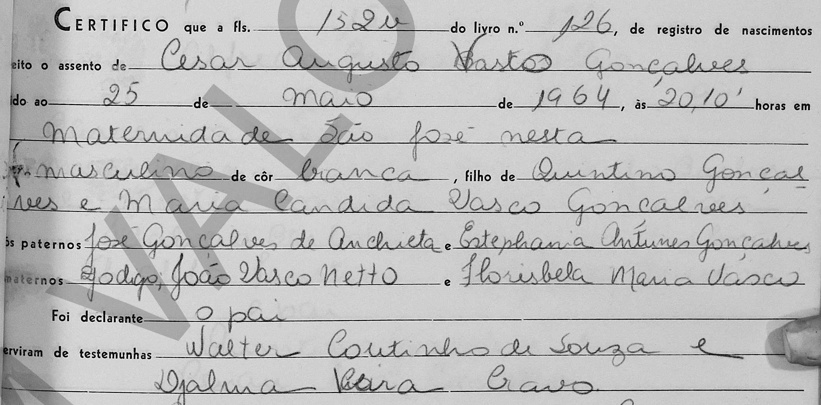 CERTIFICO que a fls. 152v do livro n.º 126, de registro de nascimentos
eito o assento de Cesar Augusto Vasto Gonçalves
do ao 25 de Maio de 1964, às 20,10' horas em
Maternidade São José nesta
masculino de côr branca, filho de Quintino Gonçal
ves e Maria Candida Vasco Gonçalves
ós paternos José Gonçalves de Anchieta e Estephania Antunes Gonçalves
maternos João Vasco Netto e Florisbela Maria Vasco
Foi declarante o pai
erviram de testemunhas Walter Coutinho de Souza e
Djalma Cravo
VALO